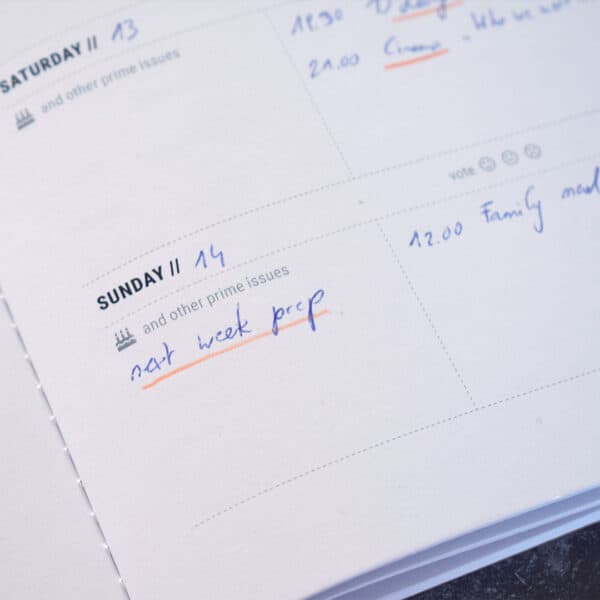 SATURDAY // 13
and other prime issues
21.00 Cinema -
vote
SUNDAY // 14
and other prime issues
next week prep
12.00 Family